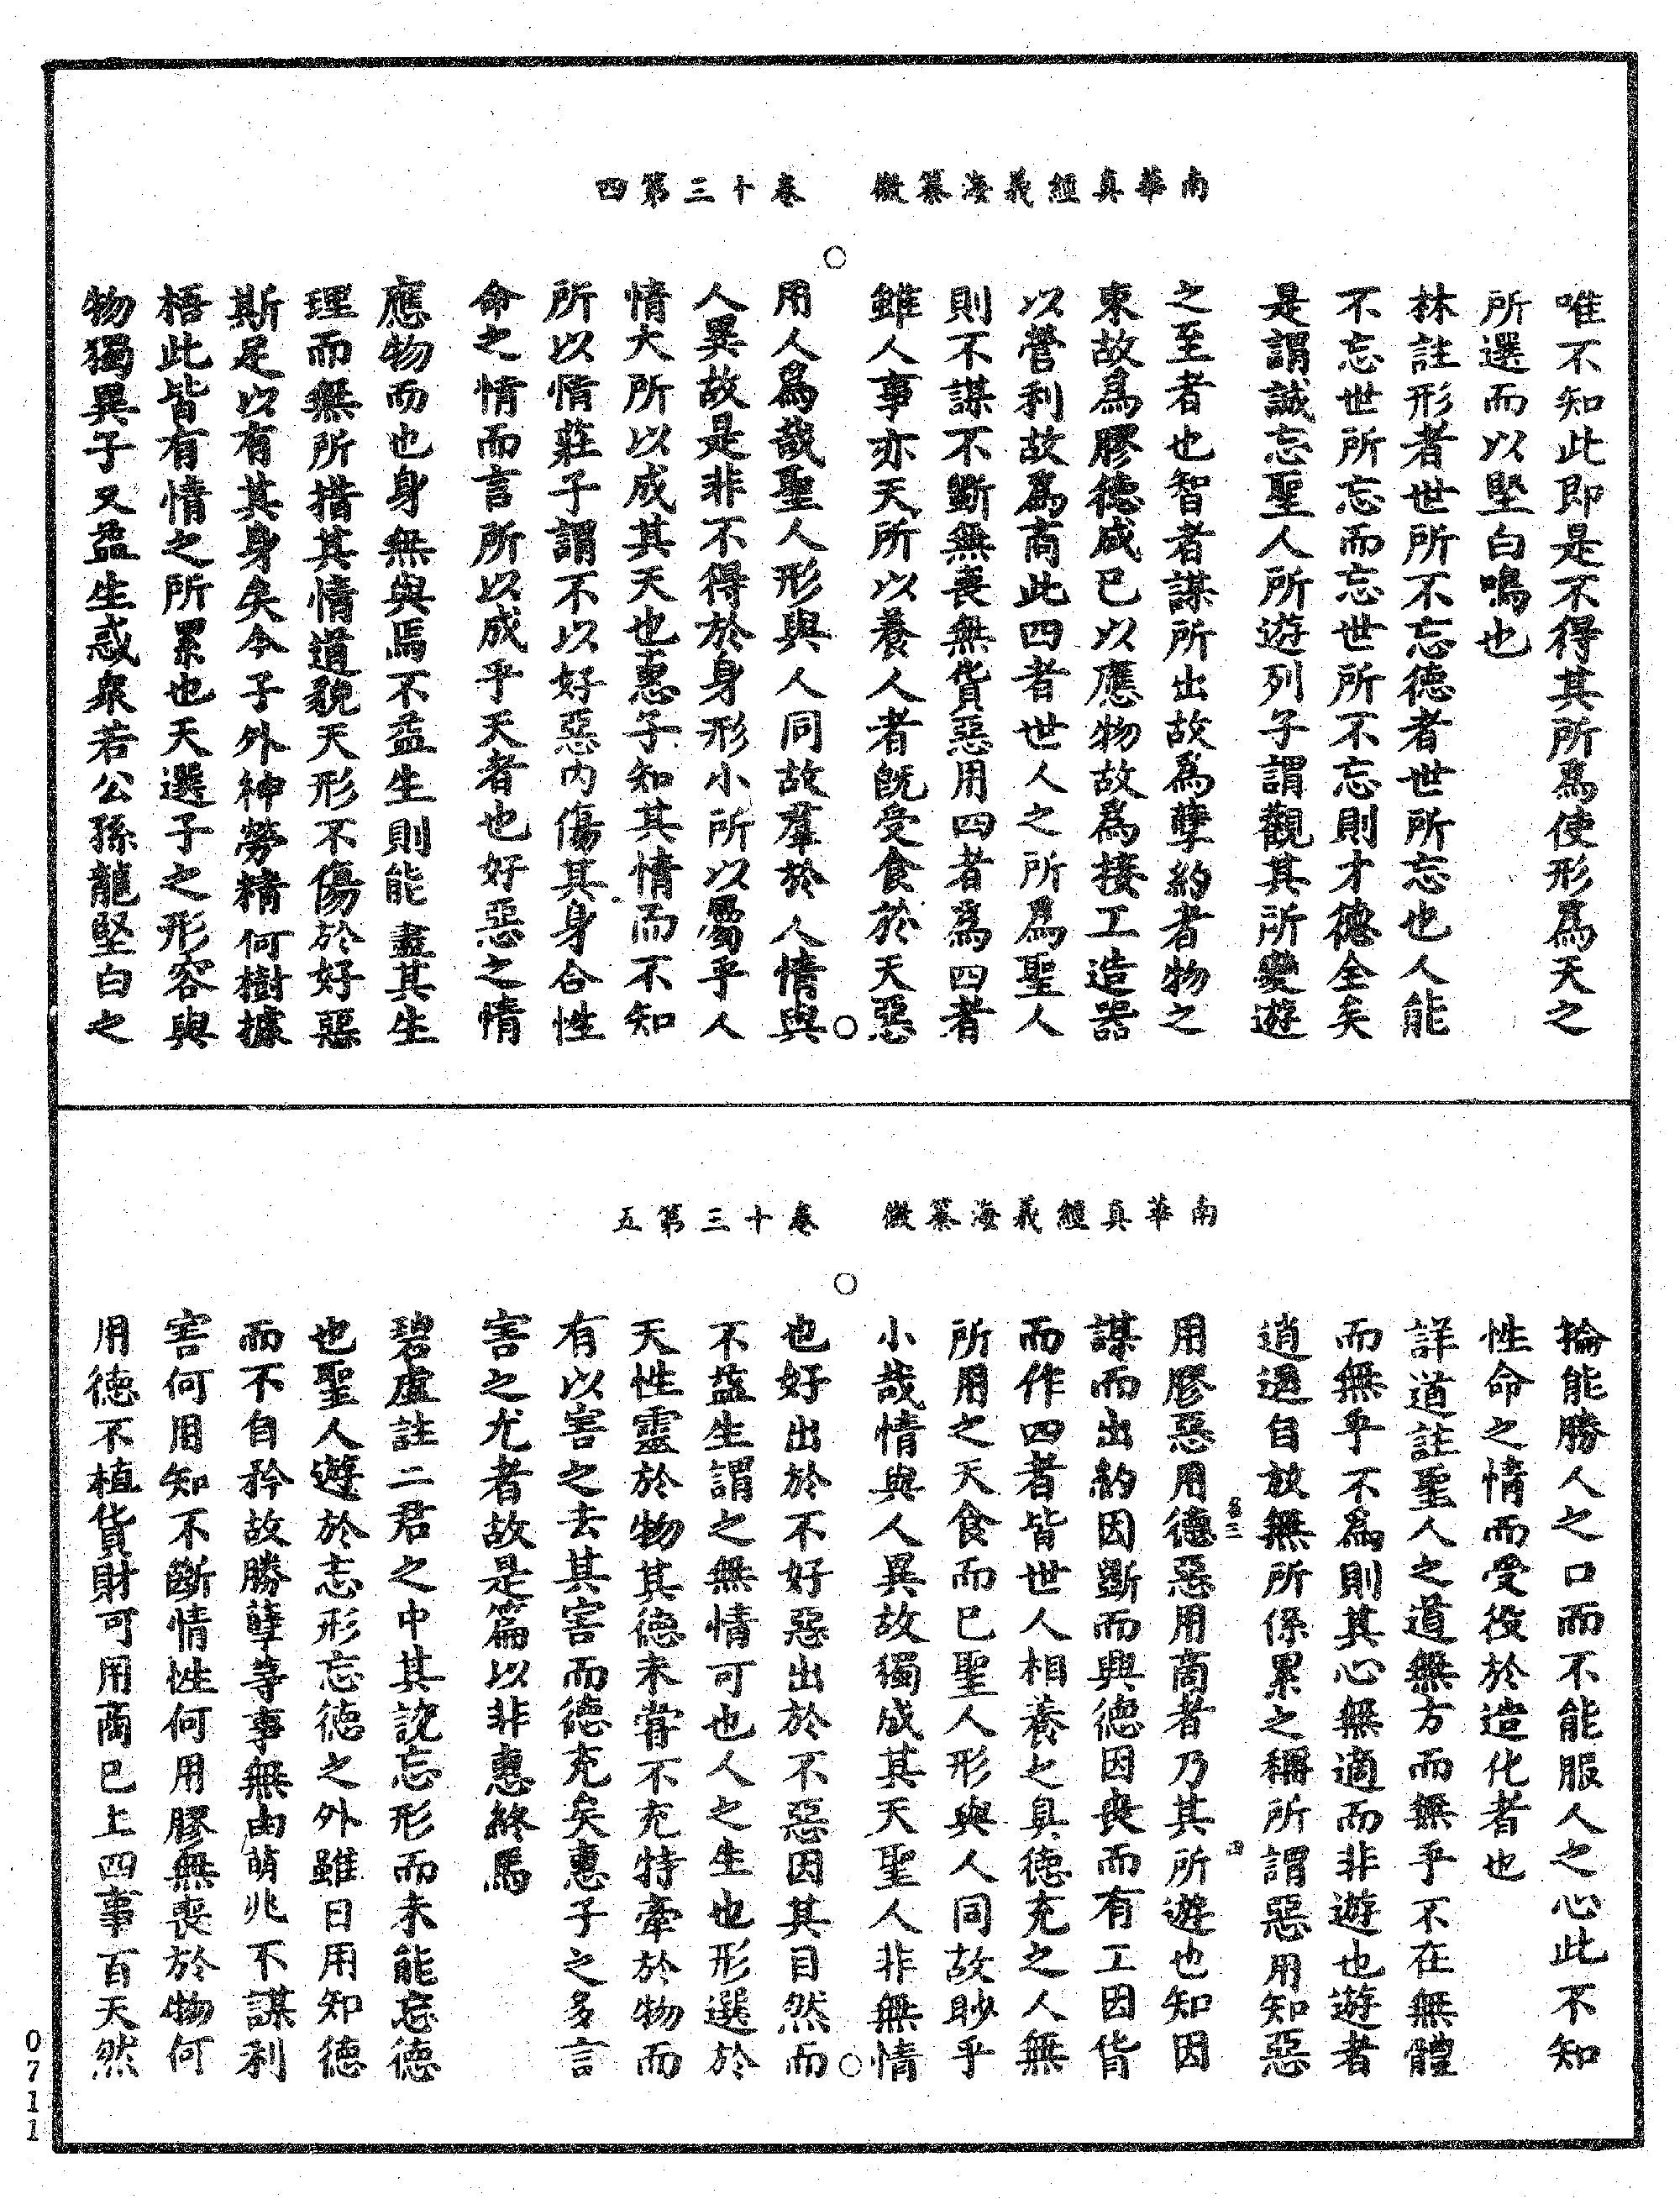 南華真經義海纂微　卷十三第四
唯不知此即是不得其所為使形為天之
所選而以堅白鳴也
林註形者世所不忘德者世所忘也人能
不忘世所忘而忘世所不忘則才德全矣
是謂誠忘聖人所遊列子謂觀其所變遊
之至者也智者謀所出故為孽約者物之
束故為膠德成已以應物故為接工造器
以營利故為商此四者世人之所為聖人
則不謀不斷無喪無貨惡用四者為四者
雖人事亦天所以養人者既受食於天惡
用人為哉聖人形與人同故羣於人情與
人異故是非不得於身形小所以屬乎人
情大所以成其天也惠子知其情而不知
所以情莊子謂不以好惡內傷其身合性
命之情而言所以成乎天者也好惡之情
應物而也身無與焉不益生則能盡其生
理而無所措其情道貌天形不傷於好惡
斯足以有其身矣今子外神勞精何樹據
梧此皆有情之所累也天選子之形容與
物獨異子又益生惑衆若公孫龍堅白之
南華真經義海纂微　卷十三第五
掄能勝人之口而不能服人之心此不知
性命之情而受役於造化者也
詳道註聖人之道無方而無乎不在無體
而無乎不為則其心無適而非遊也遊者
逍遥自放無所係累之稱所謂惡用知惡
用膠惡用德惡用商者乃其所遊也知因
謀而出約因斷而興德因喪而有工因貨
而作四者皆世人相養之具德充之人無
所用之天食而已聖人形與人同故眇乎
小哉情與人異故獨成其天聖人非無情
也好出於不好惡出於不惡因其自然而
不益生謂之無情可也人之生也形選於
天性靈於物其德未甞不充特牽於物而
有以害之去其害而德充矣惠子之多言
害之尤者故是篇以非惠終焉
碧虛註二君之中其說忘形而未能忘德
也聖人遊於志形忘德之外雖日用知德
而不自矜故勝孽等事無由萌兆不謀利
害何用知不斷情性何用膠無喪於物何
用德不植貨財可用商已上四事百天然
0711